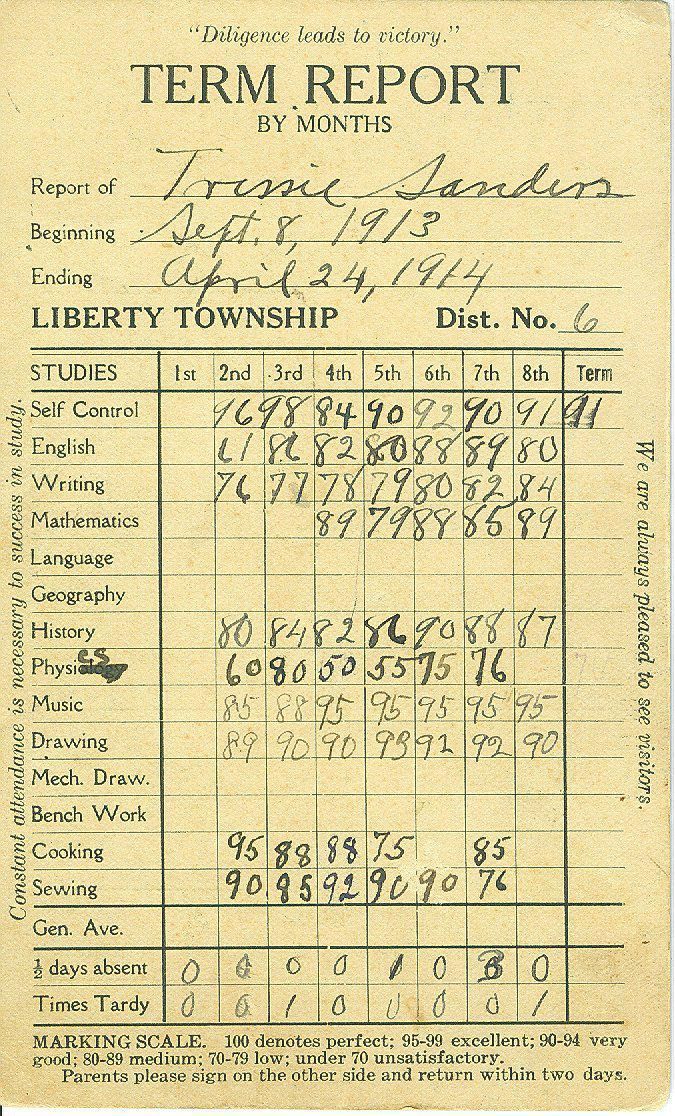 "Diligence leads to victory."
TERM REPORT
BY MONTHS
Report of Tressie Sanders
Beginning Sept. 8, 1913
Ending April 24, 1914
LIBERTY TOWNSHIP Dist. No. 6
STUDIES 1st 2nd 3rd 4th 5th 6th 7th 8th Term
Self Control 96 98 84 90 92 90 91 91
English 61 86 82 80 88 89 80
Writing 76 77 78 79 80 82 84
Mathematics 89 79 88 85 89
Language
Geography
History 80 84 82 86 90 88 87
Physics 60 80 50 55 75 76
Music 85 88 95 95 95 95 95
Drawing 89 90 90 93 92 92 90
Mech. Draw.
Bench Work
Cooking 95 88 88 75 85
Sewing 90 85 92 90 90 76
Gen. Ave.
½ days absent 0 0 0 0 1 0 3 0
Times Tardy 0 0 1 0 0 0 0 1
MARKING SCALE. 100 denotes perfect; 95-99 excellent; 90-94 very
good; 80-89 medium; 70-79 low; under 70 unsatisfactory.
Parents please sign on the other side and return within two days.
Constant attendance is necessary to success in study.
We are always pleased to see visitors.